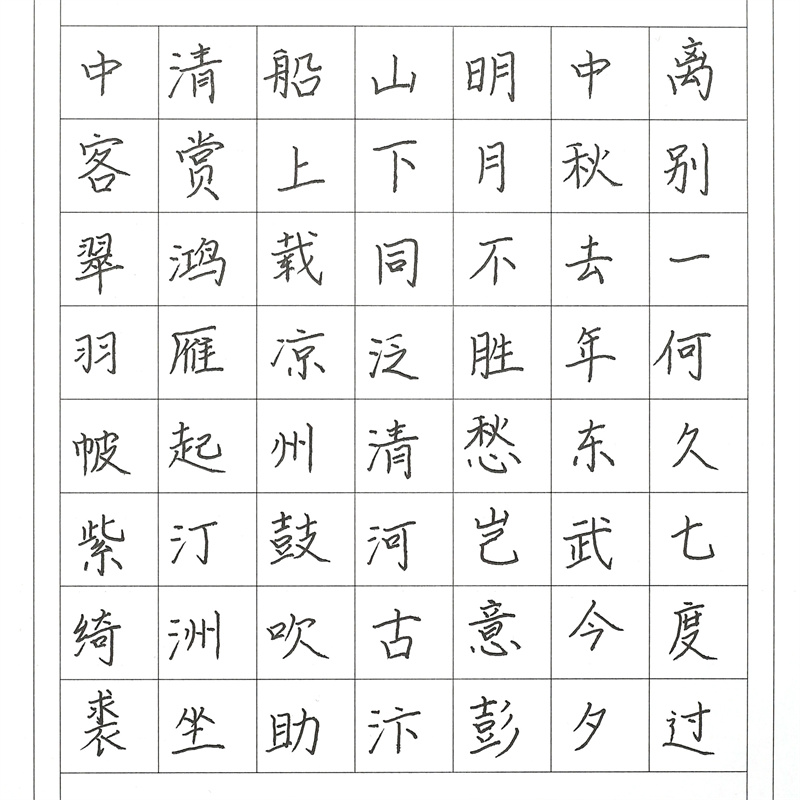 离别一何久七度过
中秋去年东武今夕
明月不胜愁岂意彭
山下同泛清河古汴
船上载凉州鼓吹助
清赏鸿雁起汀洲坐
中客翠羽帔紫绮裘